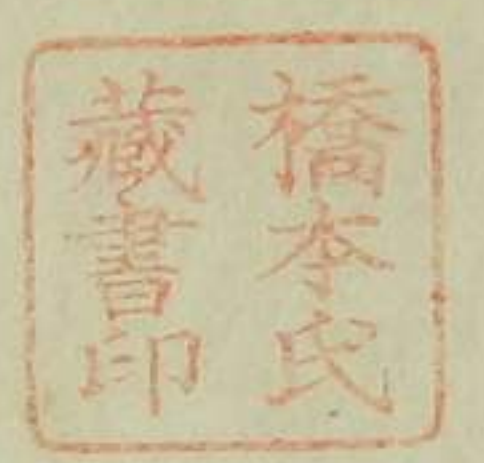 橋夲氏
藏書印